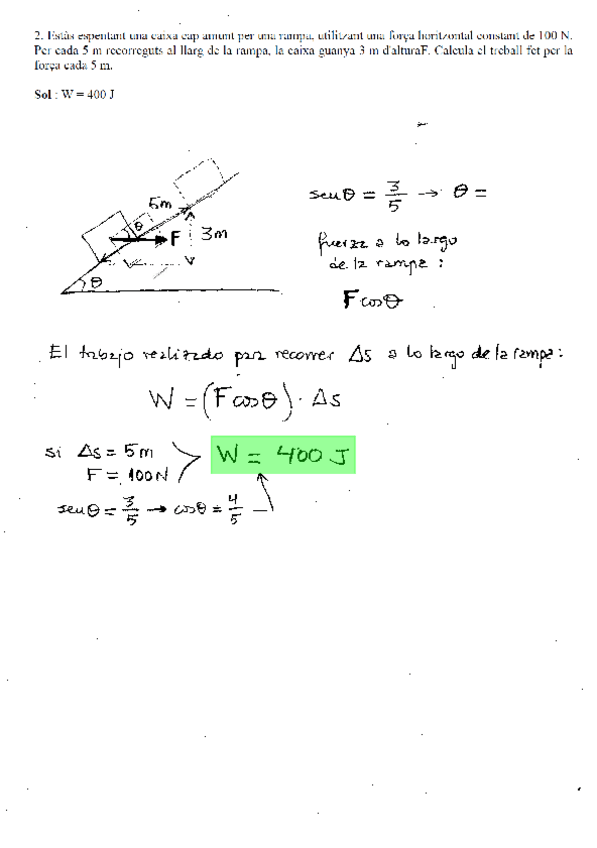 2. Estàs espentant una caixa cap amunt per una rampa, utilitzant una força horitzontal constant de 100 N.
Per cada 5 m recorreguts al llarg de la rampa, la caixa guanya 3 m d'alturaF. Calcula el treball fet per la
força cada 5 m.
Sol : W = 400 J
5m
θ
F
3m
θ
senθ = 3/5 → θ =
fuerza a lo largo
de la rampa :
F cosθ
El trabajo realizado para recorrer Δs a lo largo de la rampa :
W = (F cosθ) · Δs
si Δs = 5 m
F = 100 N
W = 400 J
senθ = 3/5 → cosθ = 4/5